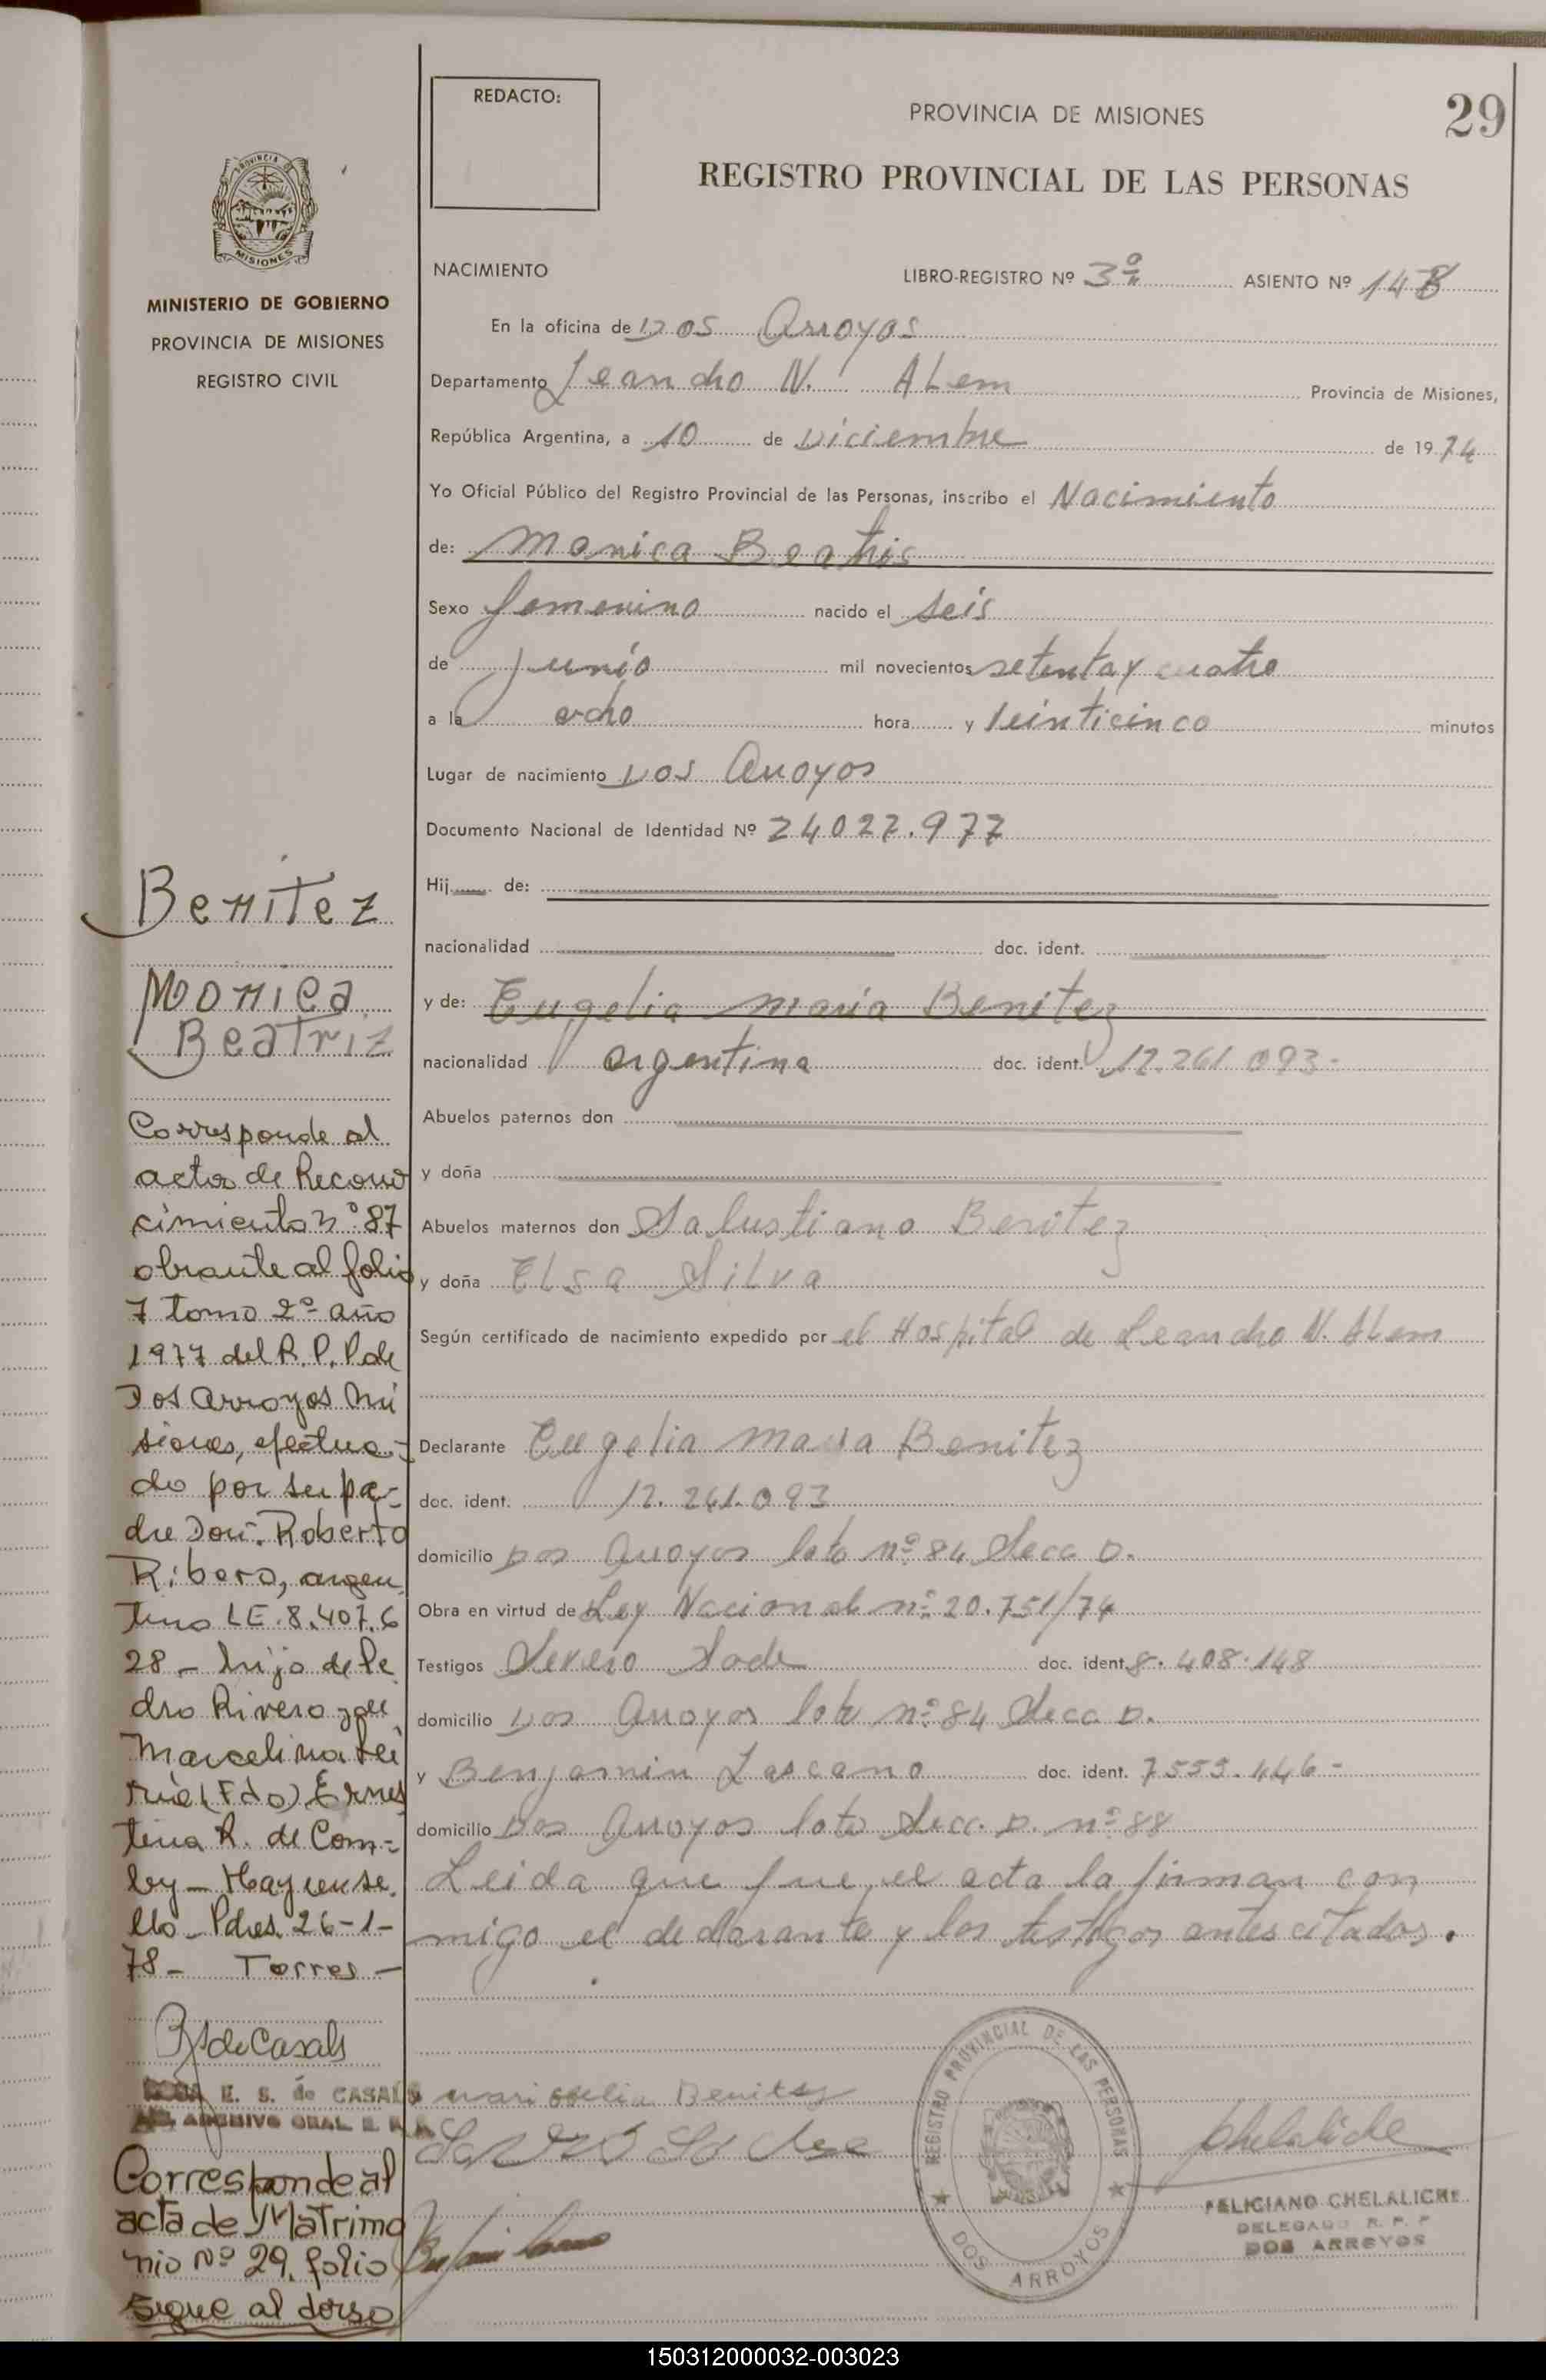 29
REDACTO:
PROVINCIA DE MISIONES
REGISTRO PROVINCIAL DE LAS PERSONAS
PROVINCIA DE
MISIONES
MINISTERIO DE GOBIERNO
PROVINCIA DE MISIONES
REGISTRO CIVIL
NACIMIENTO LIBRO-REGISTRO Nº 3º ASIENTO Nº 148
En la oficina de Dos Arroyos
Departamento Leandro N. ALem Provincia de Misiones,
República Argentina, a 10 de Diciembre de 1974
Yo Oficial Público del Registro Provincial de las Personas, inscribo el Nacimiento
de: Monica Beatris
Sexo femenino nacido el seis
de junio mil novecientos setenta y cuatro
a la ocho hora y veinticinco minutos
Lugar de nacimiento Dos Arroyos
Documento Nacional de Identidad Nº 24027.977
Hij de:
nacionalidad doc. ident.
y de: Eugelia maria Benitez
nacionalidad argentina doc. ident. 12.261.093-
Abuelos paternos don
y doña
Abuelos maternos don Salustiano Benitez
y doña ELsa Silva
Según certificado de nacimiento expedido por el Hospital de Leandro N. ALem
Declarante Eugelia maria Benitez
doc. ident. 12.261.093
domicilio Dos Arroyos lote nº 84 Secc D.
Obra en virtud de Ley Nacional nº 20.751/74
Testigos doc. ident. 8.408.148
domicilio Dos Arroyos lote nº 84 Secc D.
y Benjamin Lascano doc. ident. 7555.446-
domicilio Dos Arroyos lote Secc. D. nº 88
Leida que fue el acta la firman con
migo el declarante y los testigos antes citados.
Benitez
Monica
Beatriz
Corresponde al
acta de Recono
cimiento nº 87
obrante al folio
7 tomo 2º año
1977 del R. P. P de
Dos Arroyos Mi
siones, efectua-
do por su pa-
dre Don. Roberto
Ribero, argen
tino LE. 8.407.6
28 - hijo de Pe
dro Rivero y de
Marcelina
(Fdo) Ernes
tina R. de Com-
by - Hay un se.
llo - Pdas. 26-1-
78 - Torres -
Bs de Casals
E. S. de CASALS
ARCHIVO GRAL R. P. P.
Corresponde al
acta de Matrimo
nio Nº 29, folio
sigue al dorso
Benitez
REGISTRO PROVINCIAL DE LAS PERSONAS
DOS ARROYOS
Chelaliche
FELICIANO CHELALICHE
DELEGADO R. P. P
DOS ARROYOS
150312000032-003023